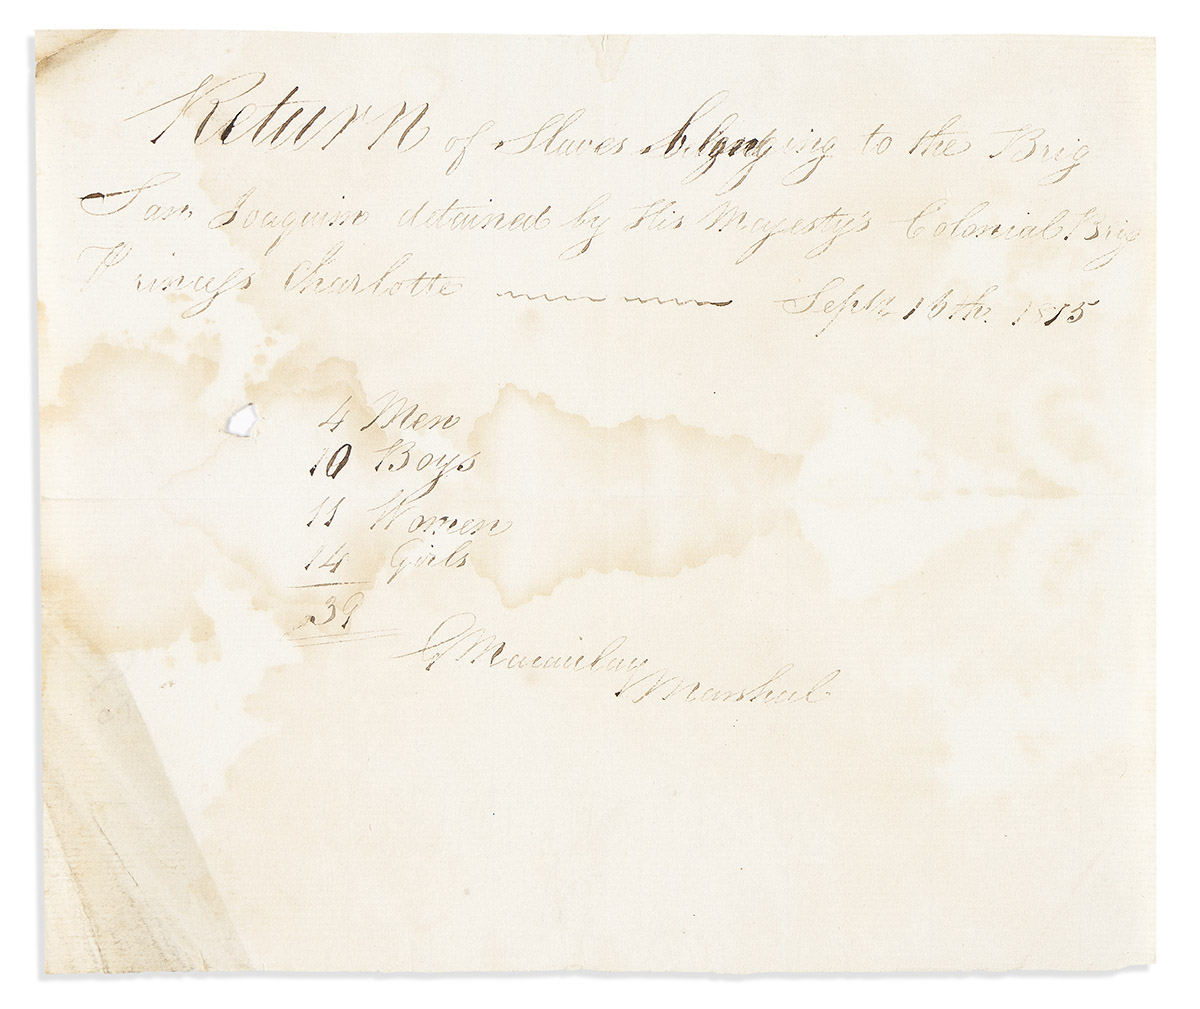 Return of Slaves belonging to the Brig
San Joaquim detained by His Majesty's Colonial Brig
Princess Charlotte Septr 16th. 1815
4 Men
10 Boys
11 Women
14 Girls
39
Macaulay
Marshal